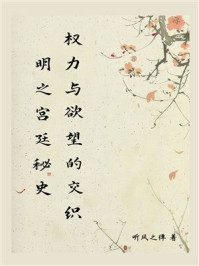 权力与欲望的交织
明之宫廷秘史
听风之 著